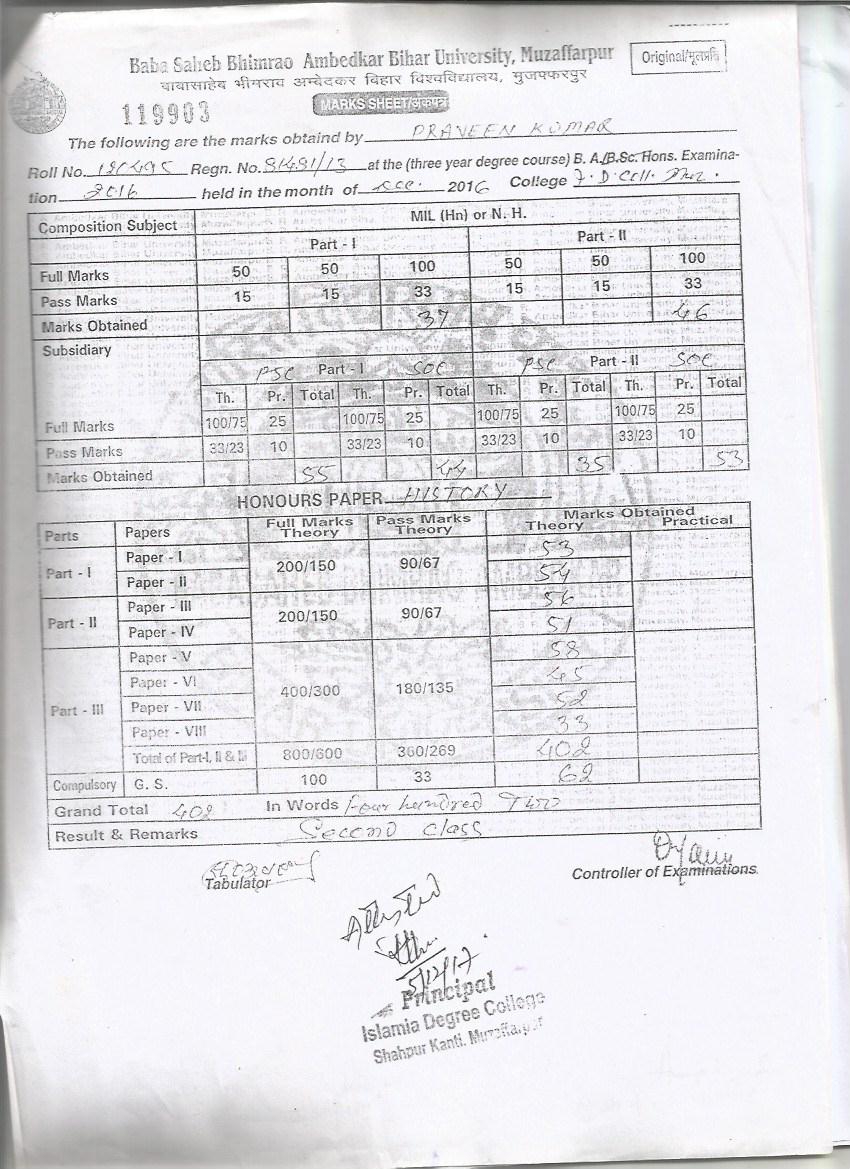 Baba Saheb Bhimrao Ambedkar Bihar University, Muzaffarpur
Original/मूलप्रति
बाबासाहेब भीमराव अम्बेदकर विहार विश्वविद्यालय, मुजफ्फरपुर
119903
MARKS SHEET/अंकपत्र
The following are the marks obtaind by PRAVEEN KUMAR
Roll No. Regn. No. 81481/13 at the (three year degree course) B. A./B.Sc. Hons. Examina-
tion 2016 held in the month of Dec. 2016 College
Composition Subject MIL (Hn) or N. H.
Part - I Part - II
Full Marks 50 50 100 50 50 100
Pass Marks 15 15 33 15 15 33
Marks Obtained 37 46
Subsidiary
PSC Part - I SOC PSC Part - II SOC
Th. Pr. Total Th. Pr. Total Th. Pr. Total Th. Pr. Total
Full Marks 100/75 25 100/75 25 100/75 25 100/75 25
Pass Marks 33/23 10 33/23 10 33/23 10 33/23 10
Marks Obtained 55 44 35 53
HONOURS PAPER HISTORY
Parts Papers Full Marks Theory Pass Marks Theory Marks Obtained Theory Practical
Part - I Paper - I 200/150 90/67 53
Paper - II 54
Part - II Paper - III 200/150 90/67 56
Paper - IV 51
Part - III Paper - V 400/300 180/135 58
Paper - VI 45
Paper - VII 52
Paper - VIII 33
Total of Part-I, II & III 800/600 360/269 402
Compulsory G. S. 100 33 62
Grand Total 402 In Words Four hundred Two
Result & Remarks Second Class
Tabulator
Controller of Examinations
Attested
5/12/17
Principal
Islamia Degree College
Shahpur Kanti. Muzaffarpur